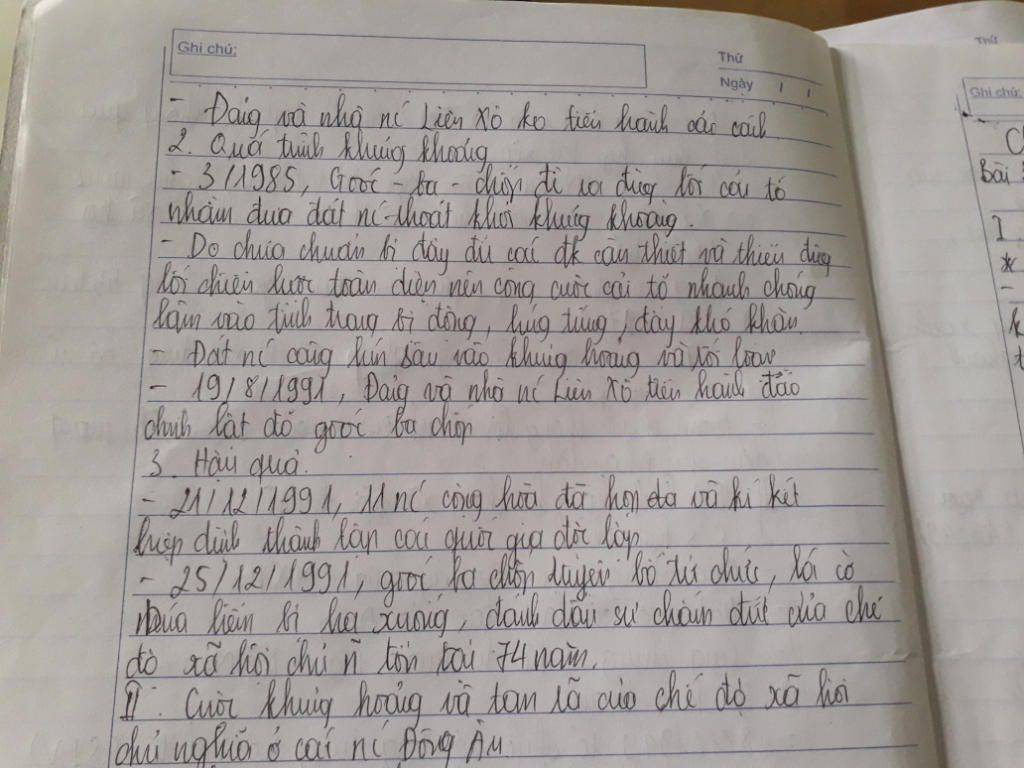 Ghi chú:
Thứ
Ngày / /
- Đảng và nhà nc Liên Xô ko tiến hành cải cách
2. Quá trình khủng khoảng
- 3/1985, Gooc-ba-chốp đề ra đường lối cải tổ
nhằm đưa đất nc thoát khỏi khủng khoảng.
- Do chưa chuẩn bị đầy đủ các đk cần thiết và thiếu đường
lối chiến lược toàn diện nên công cuộc cải tổ nhanh chóng
lâm vào tình trạng bị động, lúng túng, đầy khó khăn.
- Đất nc càng lún sâu vào khủng hoảng và rối loạn
- 19/8/1991, Đảng và nhà nc Liên Xô tiến hành đảo
chính lật đổ gooc ba chốp
3. Hậu quả.
- 21/12/1991, 11 nc cộng hòa đã họp và kí kết
hiệp định thành lập các quốc gia độc lập
- 25/12/1991, gooc ba chốp tuyên bố từ chức, lá cờ
búa liềm bị hạ xuống, đánh dấu sự chấm dứt của chế
độ xã hội chủ n tồn tại 74 năm.
II. Cuộc khủng hoảng và tan rã của chế độ xã hội
chủ nghĩa ở các nc Đông Âu
Thứ
Ghi chú:
C
Bài
1
*
-